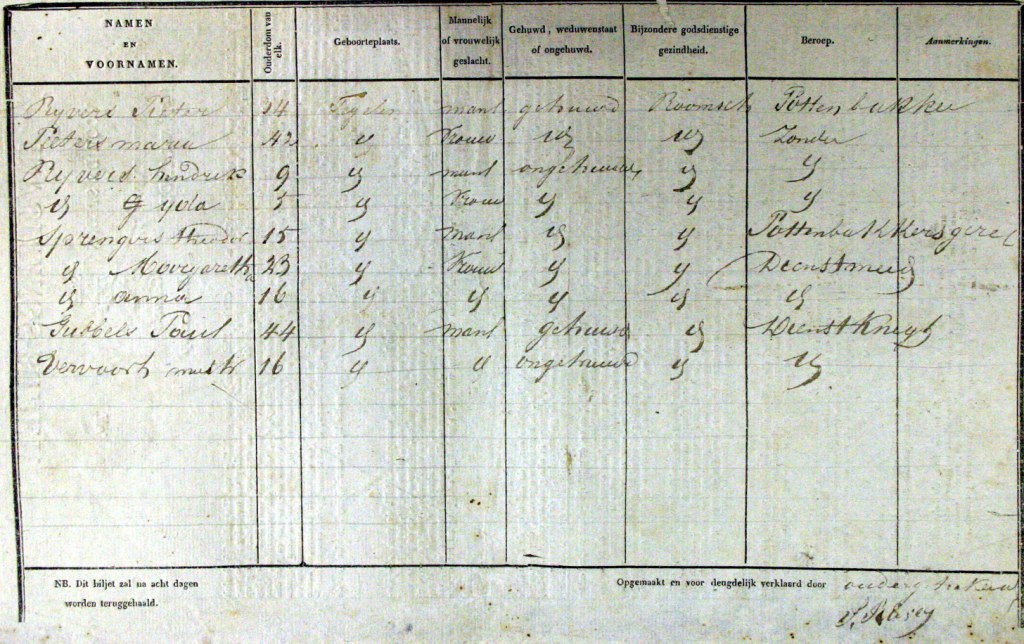 NAMEN EN VOORNAMEN. Ouderdom van elk. Geboorteplaats. Mannelijk of vrouwelijk geslacht. Gehuwd, weduwenstaat of ongehuwd. Bijzondere godsdienstige gezindheid. Beroep. Aanmerkingen.
Ryvers Pieter 14 Tegelen manl gehuwd Roomsch Pottenbakker
Pieters maria 42 y Vrouw y y Zonder
Ryvers hendrik 9 y manl ongehuwd y y
y 5 y Vrou y y y
Sprengers theodor 15 y manl y y Pottenbakkersgezel
y Morgaretha 23 y Vrouw y y Deenstmeid
y anna 16 y y y y y
Gubbels Paul 44 y manl gehuwd y Deenstknegt
Vervoort 16 y y ongehuwd y y
NB. Dit biljet zal na acht dagen
worden teruggehaald.
Opgemaakt en voor deugdelijk verklaard door